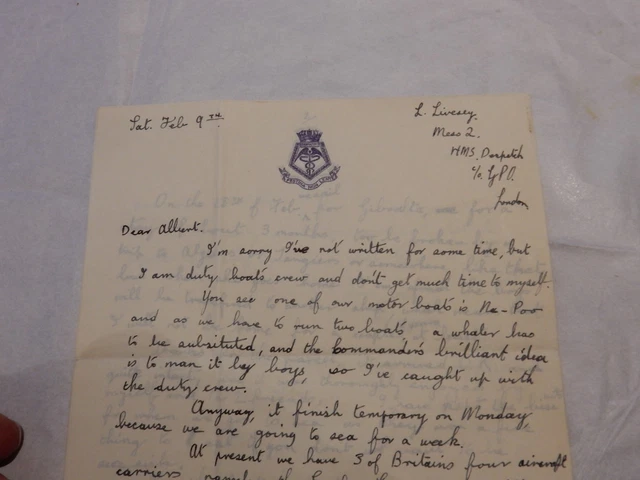 Sat. Feb 9TH
L. Livesey,
Mess 2.
HMS. Despatch
c/o G.P.O.
London
Dear Allbert.
I'm sorry I've not written for some time, but
I am duty boats crew and don't get much time to myself.
You see one of our motor boats is Na-Poo
and as we have to run two boats a whaler has
to be subsituted, and the commanders brilliant idea
is to man it by boys, so I've caught up with
the duty crew.
Anyway, it finish temporary on Monday,
because we are going to sea for a week.
At present we have 3 of Britains four aircraft
carriers